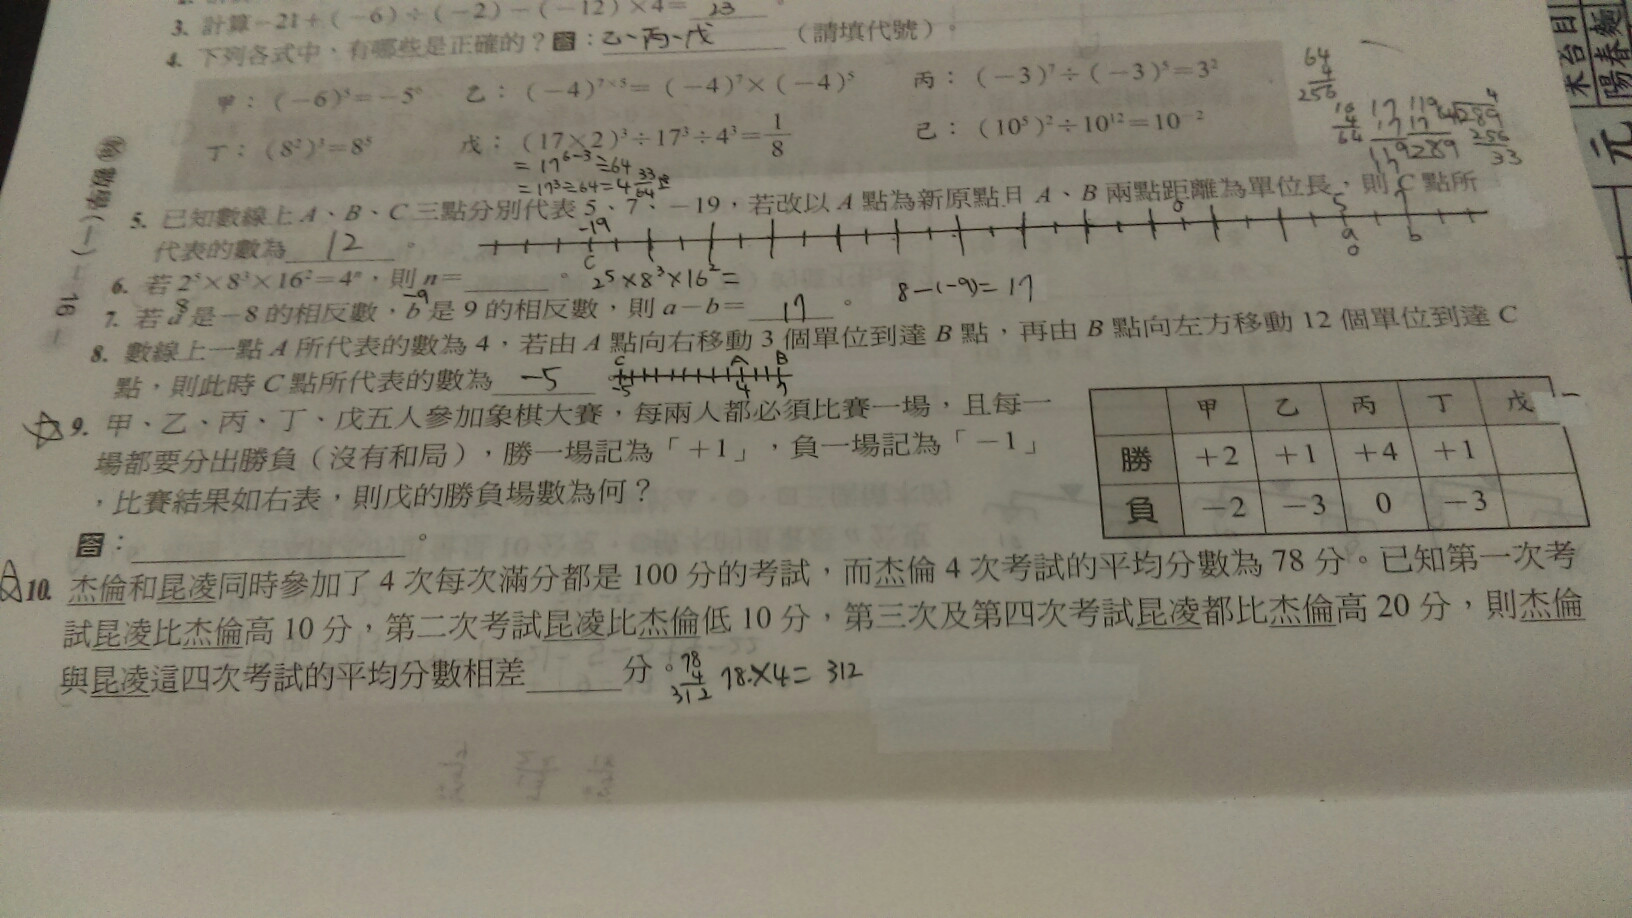 3. 計算−21+(−6)÷(−2)−(−12)×4= 23 。
4. 下列各式中，有哪些是正確的？答：乙、丙、戊（請填代號）。
甲：(−6)⁵=−5⁶ 乙：(−4)⁷ˣ⁵=(−4)⁷×(−4)⁵ 丙：(−3)⁷÷(−3)⁵=3²
丁：(8²)³=8⁵ 戊：(17×2)³÷17³÷4³=1/8 己：(10⁵)²÷10¹²=10⁻²
=17⁶⁻³÷64
=17³÷64=4 33/64
64
4
256
16
4
64
17
17
119
17
289
119
17
289
4
64√289
256
33
5. 已知數線上A、B、C三點分別代表5、7、−19，若改以A點為新原點且A、B兩點距離為單位長，則C點所
代表的數為 12 。
-19
C
0
5
7
a
0
b
6. 若2⁵×8³×16²=4ⁿ，則n=______。 2⁵×8³×16²=
8
-9
7. 若a是−8的相反數，b是9的相反數，則a−b= 17 。 8-(-9)=17
8. 數線上一點A所代表的數為4，若由A點向右移動3個單位到達B點，再由B點向左方移動12個單位到達C
點，則此時C點所代表的數為 -5
C A B
-5 4 7
9. 甲、乙、丙、丁、戊五人參加象棋大賽，每兩人都必須比賽一場，且每一
場都要分出勝負（沒有和局），勝一場記為「+1」，負一場記為「−1」
，比賽結果如右表，則戊的勝負場數為何？
答：______。
甲 乙 丙 丁 戊
勝 +2 +1 +4 +1
負 −2 −3 0 −3
10. 杰倫和昆凌同時參加了4次每次滿分都是100分的考試，而杰倫4次考試的平均分數為78分。已知第一次考
試昆凌比杰倫高10分，第二次考試昆凌比杰倫低10分，第三次及第四次考試昆凌都比杰倫高20分，則杰倫
與昆凌這四次考試的平均分數相差______分。
78
4
312
78×4=312
16
元
陽春麵